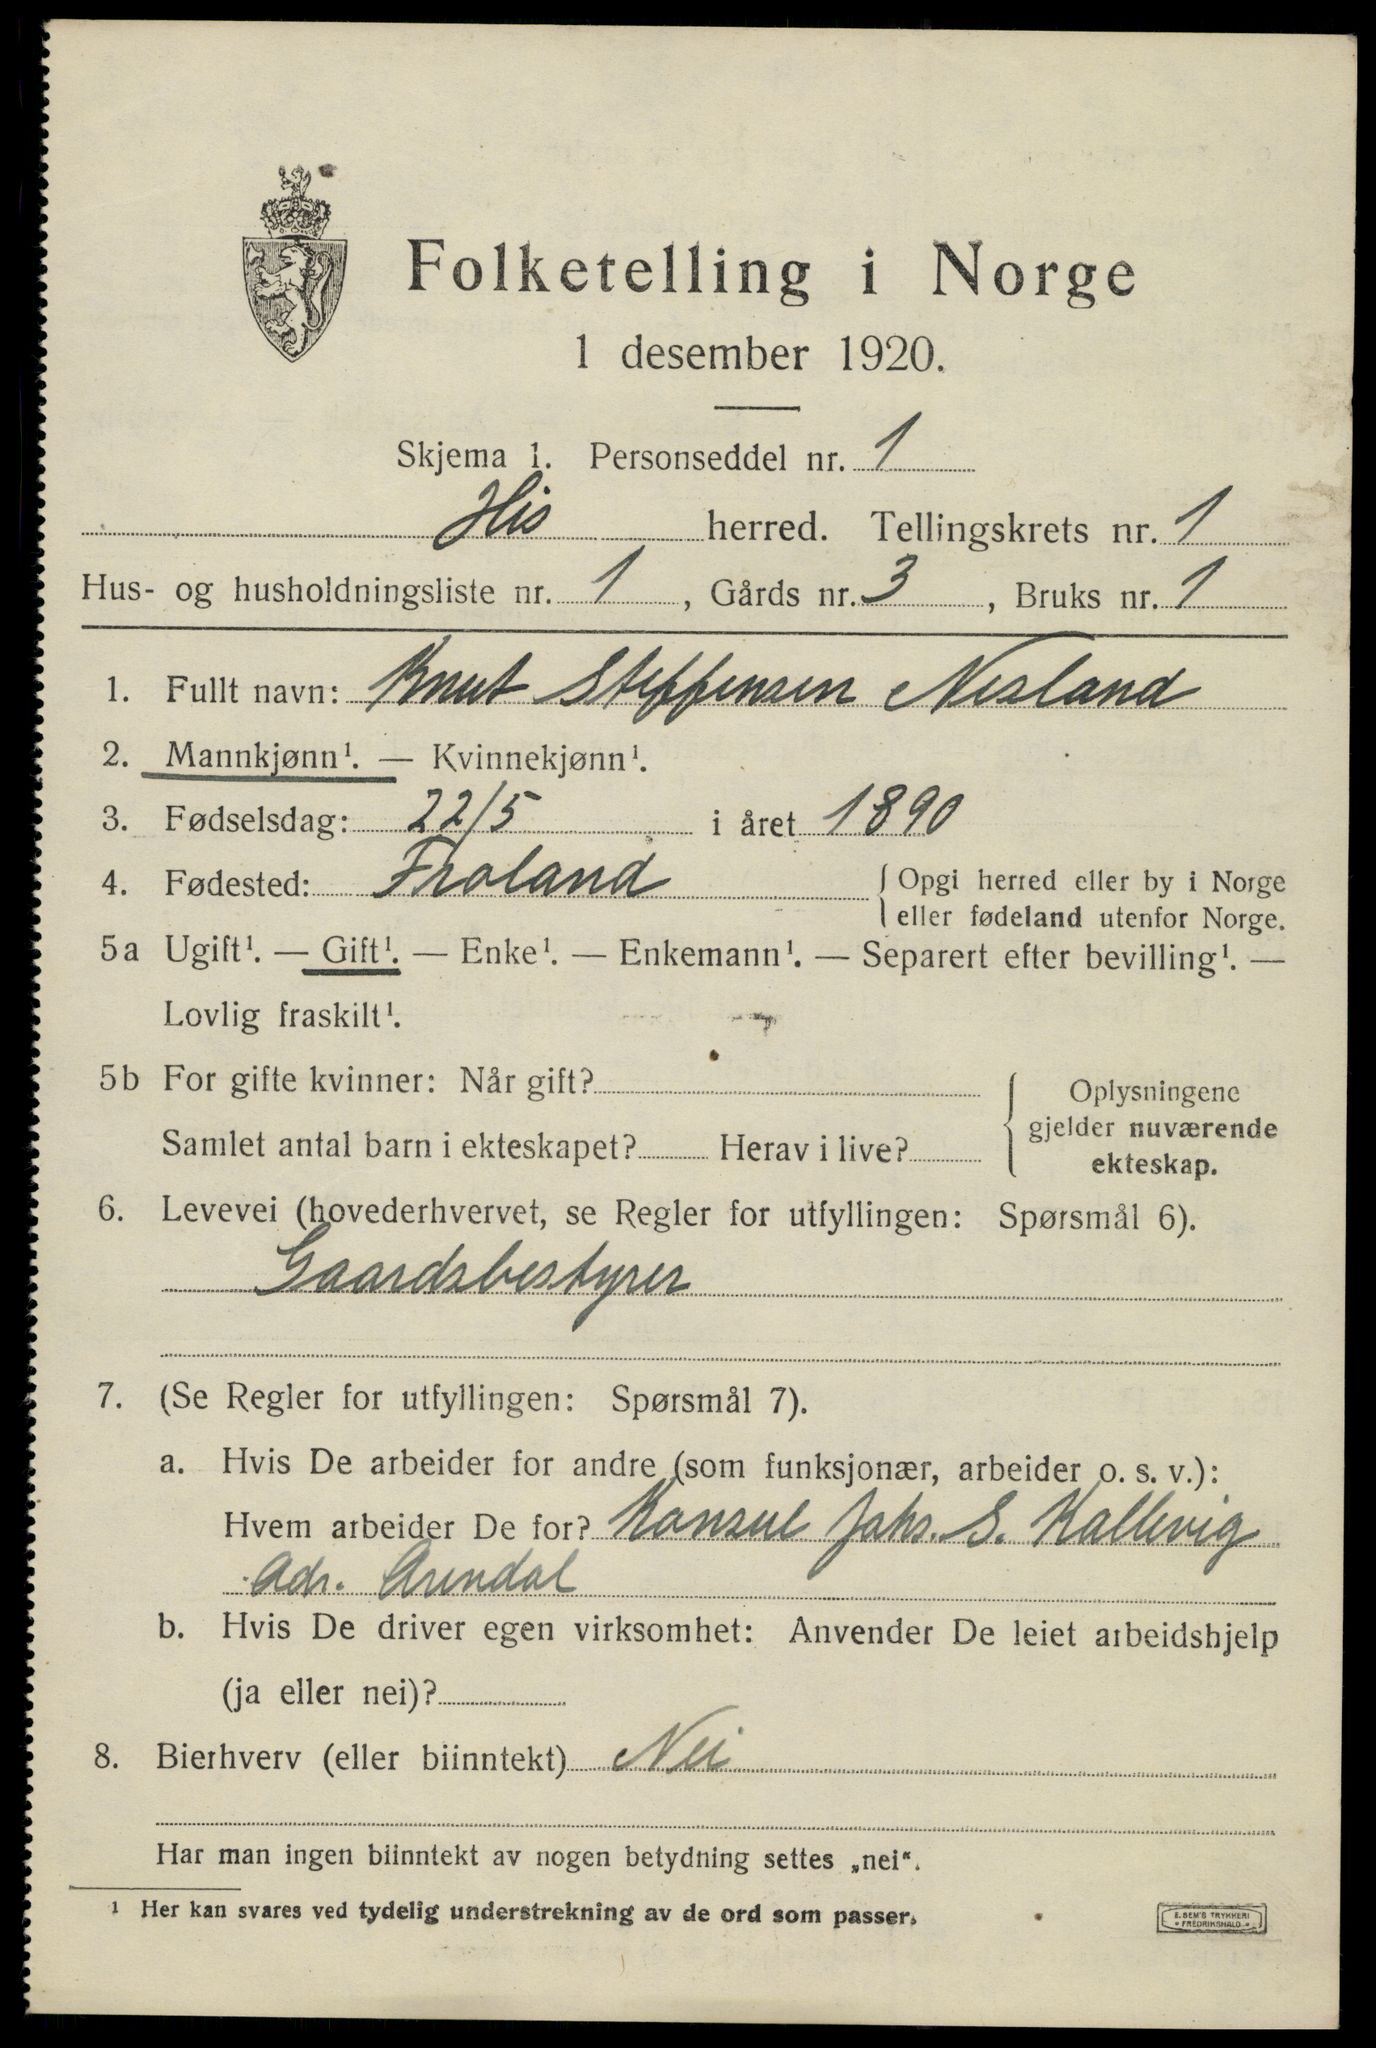 Folketelling i Norge
1 desember 1920.
Skjema 1. Personseddel nr. 1
His herred. Tellingskrets nr. 1
Hus- og husholdningsliste nr. 1, Gårds nr. 3, Bruks nr. 1
1. Fullt navn: Knut Steffensen Nesland
2. Mannkjønn¹. — Kvinnekjønn¹.
3. Fødselsdag: 22/5 i året 1890
4. Fødested: Froland { Opgi herred eller by i Norge
eller fødeland utenfor Norge.
5a Ugift¹. — Gift¹. — Enke¹. — Enkemann¹. — Separert efter bevilling¹. —
Lovlig fraskilt¹.
5b For gifte kvinner: Når gift?
Samlet antal barn i ekteskapet? Herav i live?
{ Oplysningene
gjelder nuværende
ekteskap.
6. Levevei (hovederhvervet, se Regler for utfyllingen: Spørsmål 6).
Gaardsbestyrer
7. (Se Regler for utfyllingen: Spørsmål 7).
a. Hvis De arbeider for andre (som funksjonær, arbeider o. s. v.):
Hvem arbeider De for? Konsul Johs. S. Kallevig
Adr. Arendal
b. Hvis De driver egen virksomhet: Anvender De leiet arbeidshjelp
(ja eller nei)?
8. Bierhverv (eller biinntekt) Nei
Har man ingen biinntekt av nogen betydning settes „nei“.
¹ Her kan svares ved tydelig understrekning av de ord som passer.
E. SEM'S TRYKKERI
• FREDRIKSHALD •